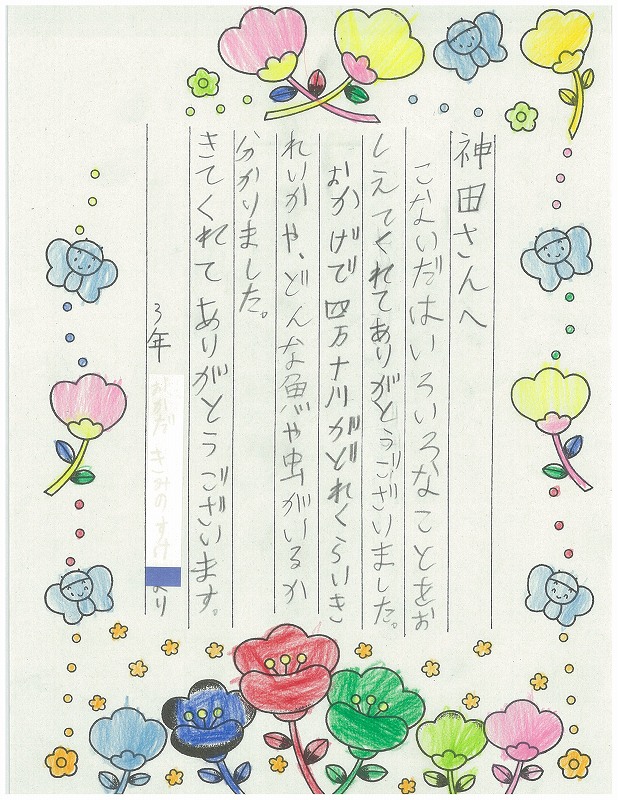 神田さんへ
こないだはいろいろなことをお
しえてくれてありがとうございました。
おかげで四万十川がどれくらいき
れいかや、どんな魚や虫がいるか
分かりました。
きてくれてありがとうございます。
3年
より